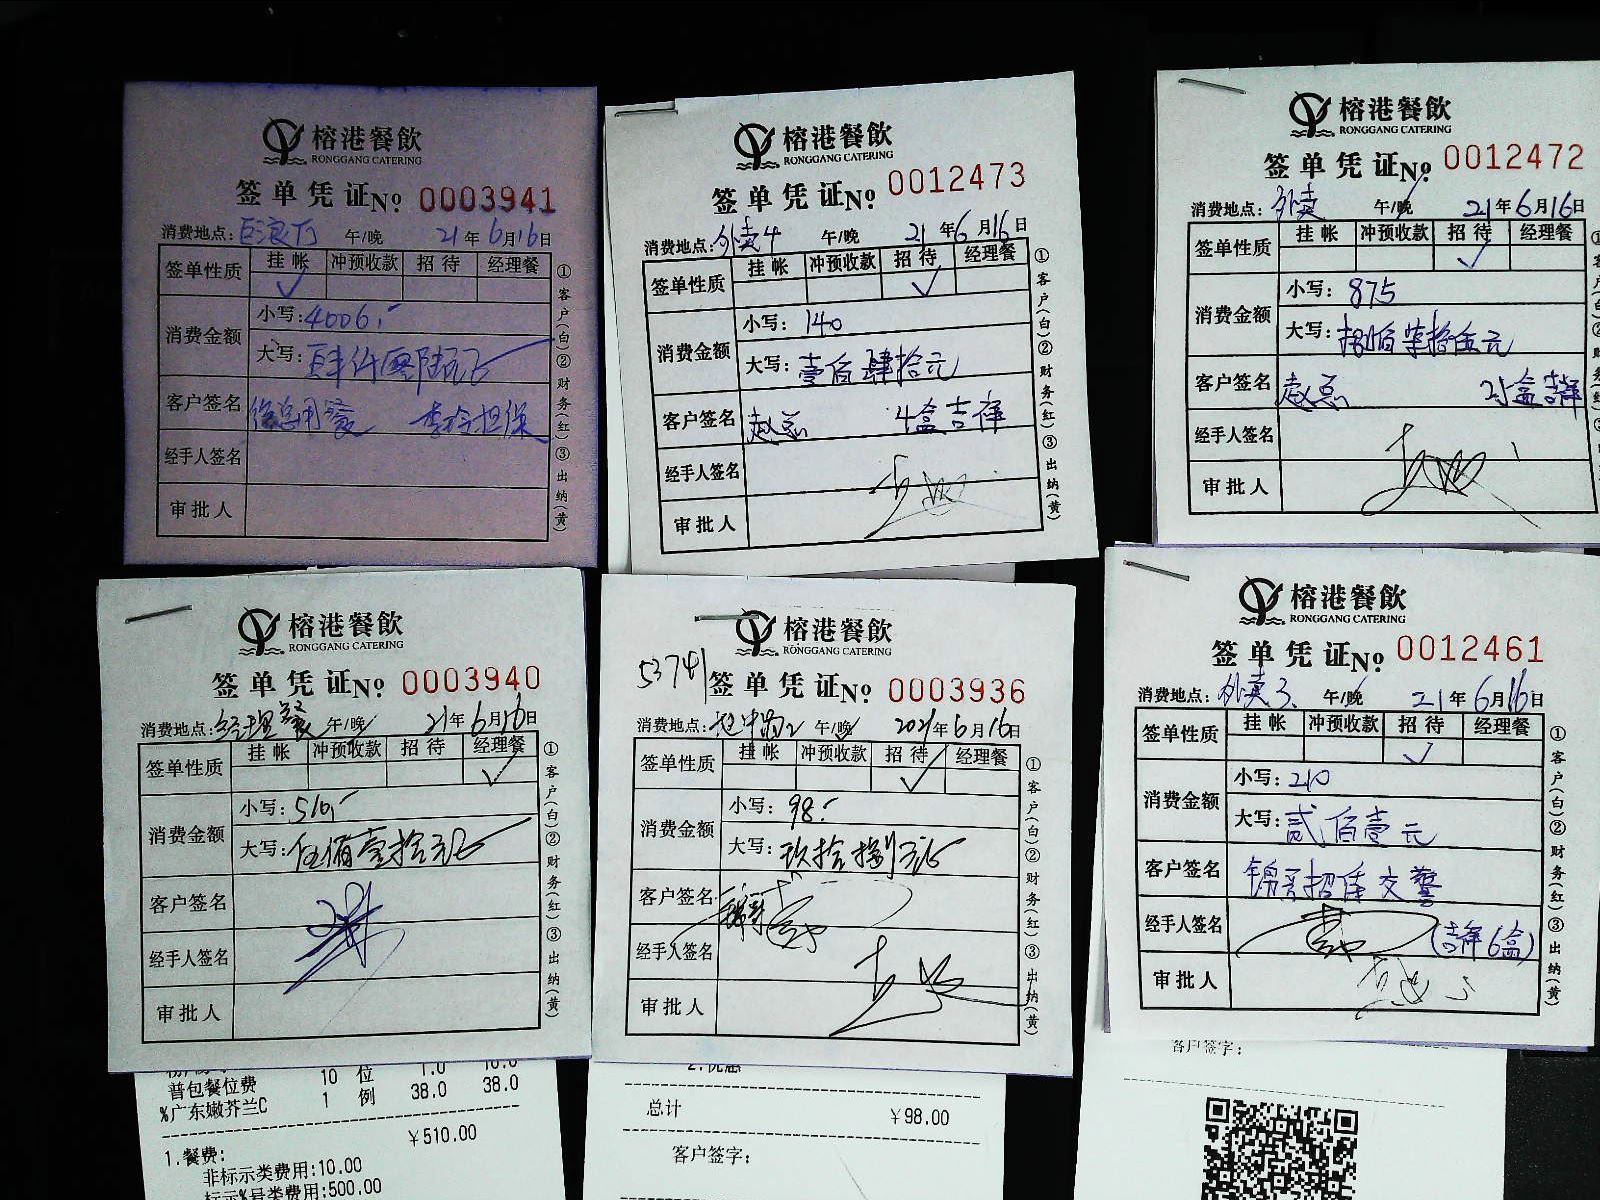 榕港餐飲
RONGGANG CATERING
签单凭证№ 0003941
消费地点: 午/晚 21年6月16日
签单性质 挂帐 冲预收款 招待 经理餐
✓
消费金额 小写: 4006.-
大写: 肆仟零陆元
客户签名 担保
经手人签名
审批人
①客户(白)②财务(红)③出纳(黄)
榕港餐飲
RONGGANG CATERING
签单凭证№ 0012473
消费地点: 外卖4 午/晚 21年6月16日
签单性质 挂帐 冲预收款 招待 经理餐
✓
消费金额 小写: 140
大写: 壹佰肆拾元
客户签名 赵总 4盒吉祥
经手人签名
审批人
①客户(白)②财务(红)③出纳(黄)
榕港餐飲
RONGGANG CATERING
签单凭证№ 0012472
消费地点: 外卖 午/晚 21年6月16日
签单性质 挂帐 冲预收款 招待 经理餐
✓
消费金额 小写: 875
大写: 捌佰柒拾伍元
客户签名 赵总 盒吉祥
经手人签名
审批人
榕港餐飲
RONGGANG CATERING
签单凭证№ 0003940
消费地点: 经理餐 午/晚 21年6月16日
签单性质 挂帐 冲预收款 招待 经理餐
✓
消费金额 小写: 510.-
大写: 伍佰壹拾元
客户签名
经手人签名
审批人
①客户(白)②财务(红)③出纳(黄)
普包餐位费 10 位 1.0 10.0
%广东嫩芥兰C 1 例 38.0 38.0
¥510.00
1.餐费:
非标示类费用:10.00
标示%号类费用:500.00
榕港餐飲
RONGGANG CATERING
53741 签单凭证№ 0003936
消费地点: 午/晚 2021年6月16日
签单性质 挂帐 冲预收款 招待 经理餐
✓
消费金额 小写: 98.-
大写: 玖拾捌元
客户签名
经手人签名
审批人
①客户(白)②财务(红)③出纳(黄)
2.优惠
总计 ¥98.00
客户签字:
榕港餐飲
RONGGANG CATERING
签单凭证№ 0012461
消费地点: 外卖3 午/晚 21年6月16日
签单性质 挂帐 冲预收款 招待 经理餐
✓
消费金额 小写: 210
大写: 贰佰壹元
客户签名 招待交警
经手人签名 (吉祥6盒)
审批人
①客户(白)②财务(红)③出纳(黄)
客户签字: